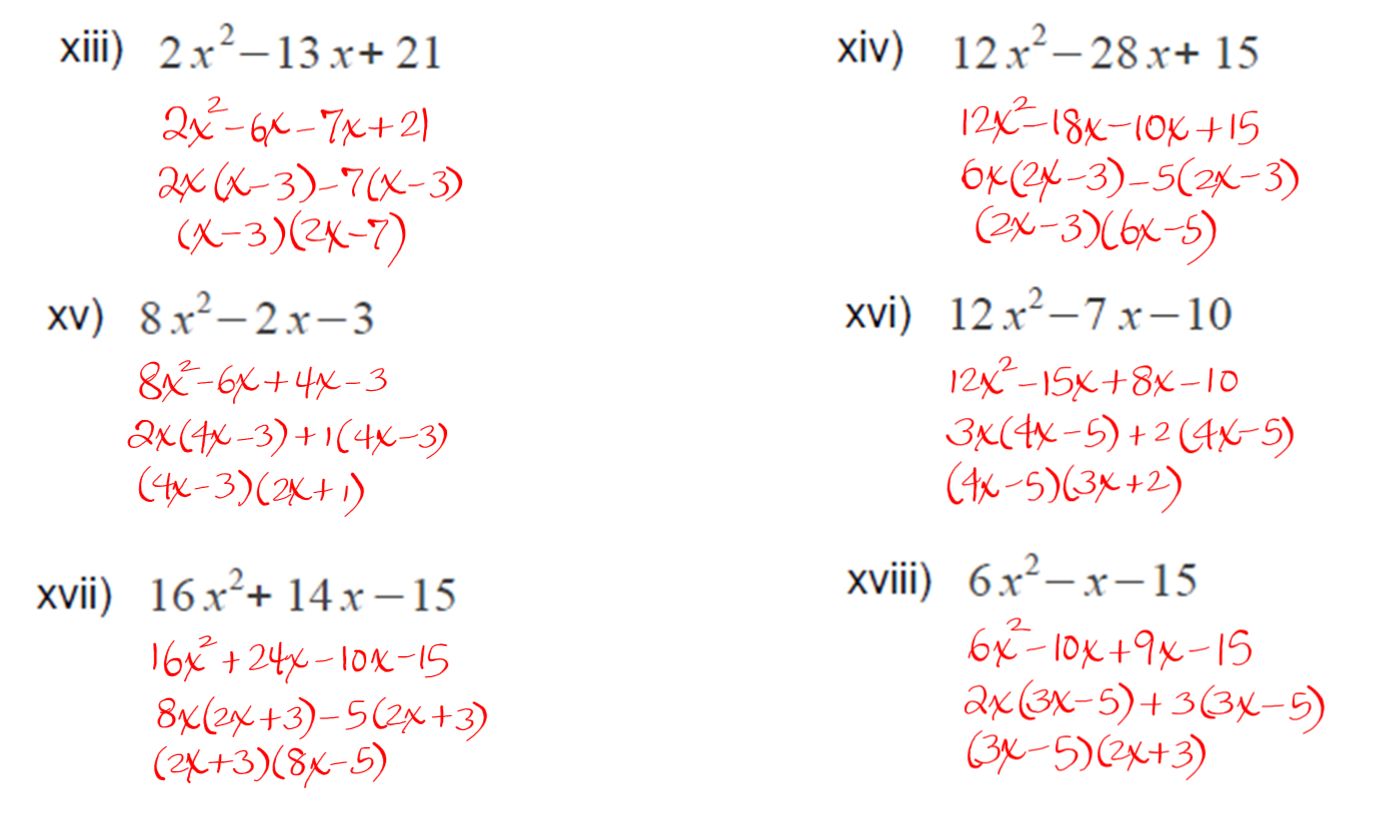 xiii) 2x²−13x+21
2x²−6x−7x+21
2x(x−3)−7(x−3)
(x−3)(2x−7)
xiv) 12x²−28x+15
12x²−18x−10x+15
6x(2x−3)−5(2x−3)
(2x−3)(6x−5)
xv) 8x²−2x−3
8x²−6x+4x−3
2x(4x−3)+1(4x−3)
(4x−3)(2x+1)
xvi) 12x²−7x−10
12x²−15x+8x−10
3x(4x−5)+2(4x−5)
(4x−5)(3x+2)
xvii) 16x²+14x−15
16x²+24x−10x−15
8x(2x+3)−5(2x+3)
(2x+3)(8x−5)
xviii) 6x²−x−15
6x²−10x+9x−15
2x(3x−5)+3(3x−5)
(3x−5)(2x+3)